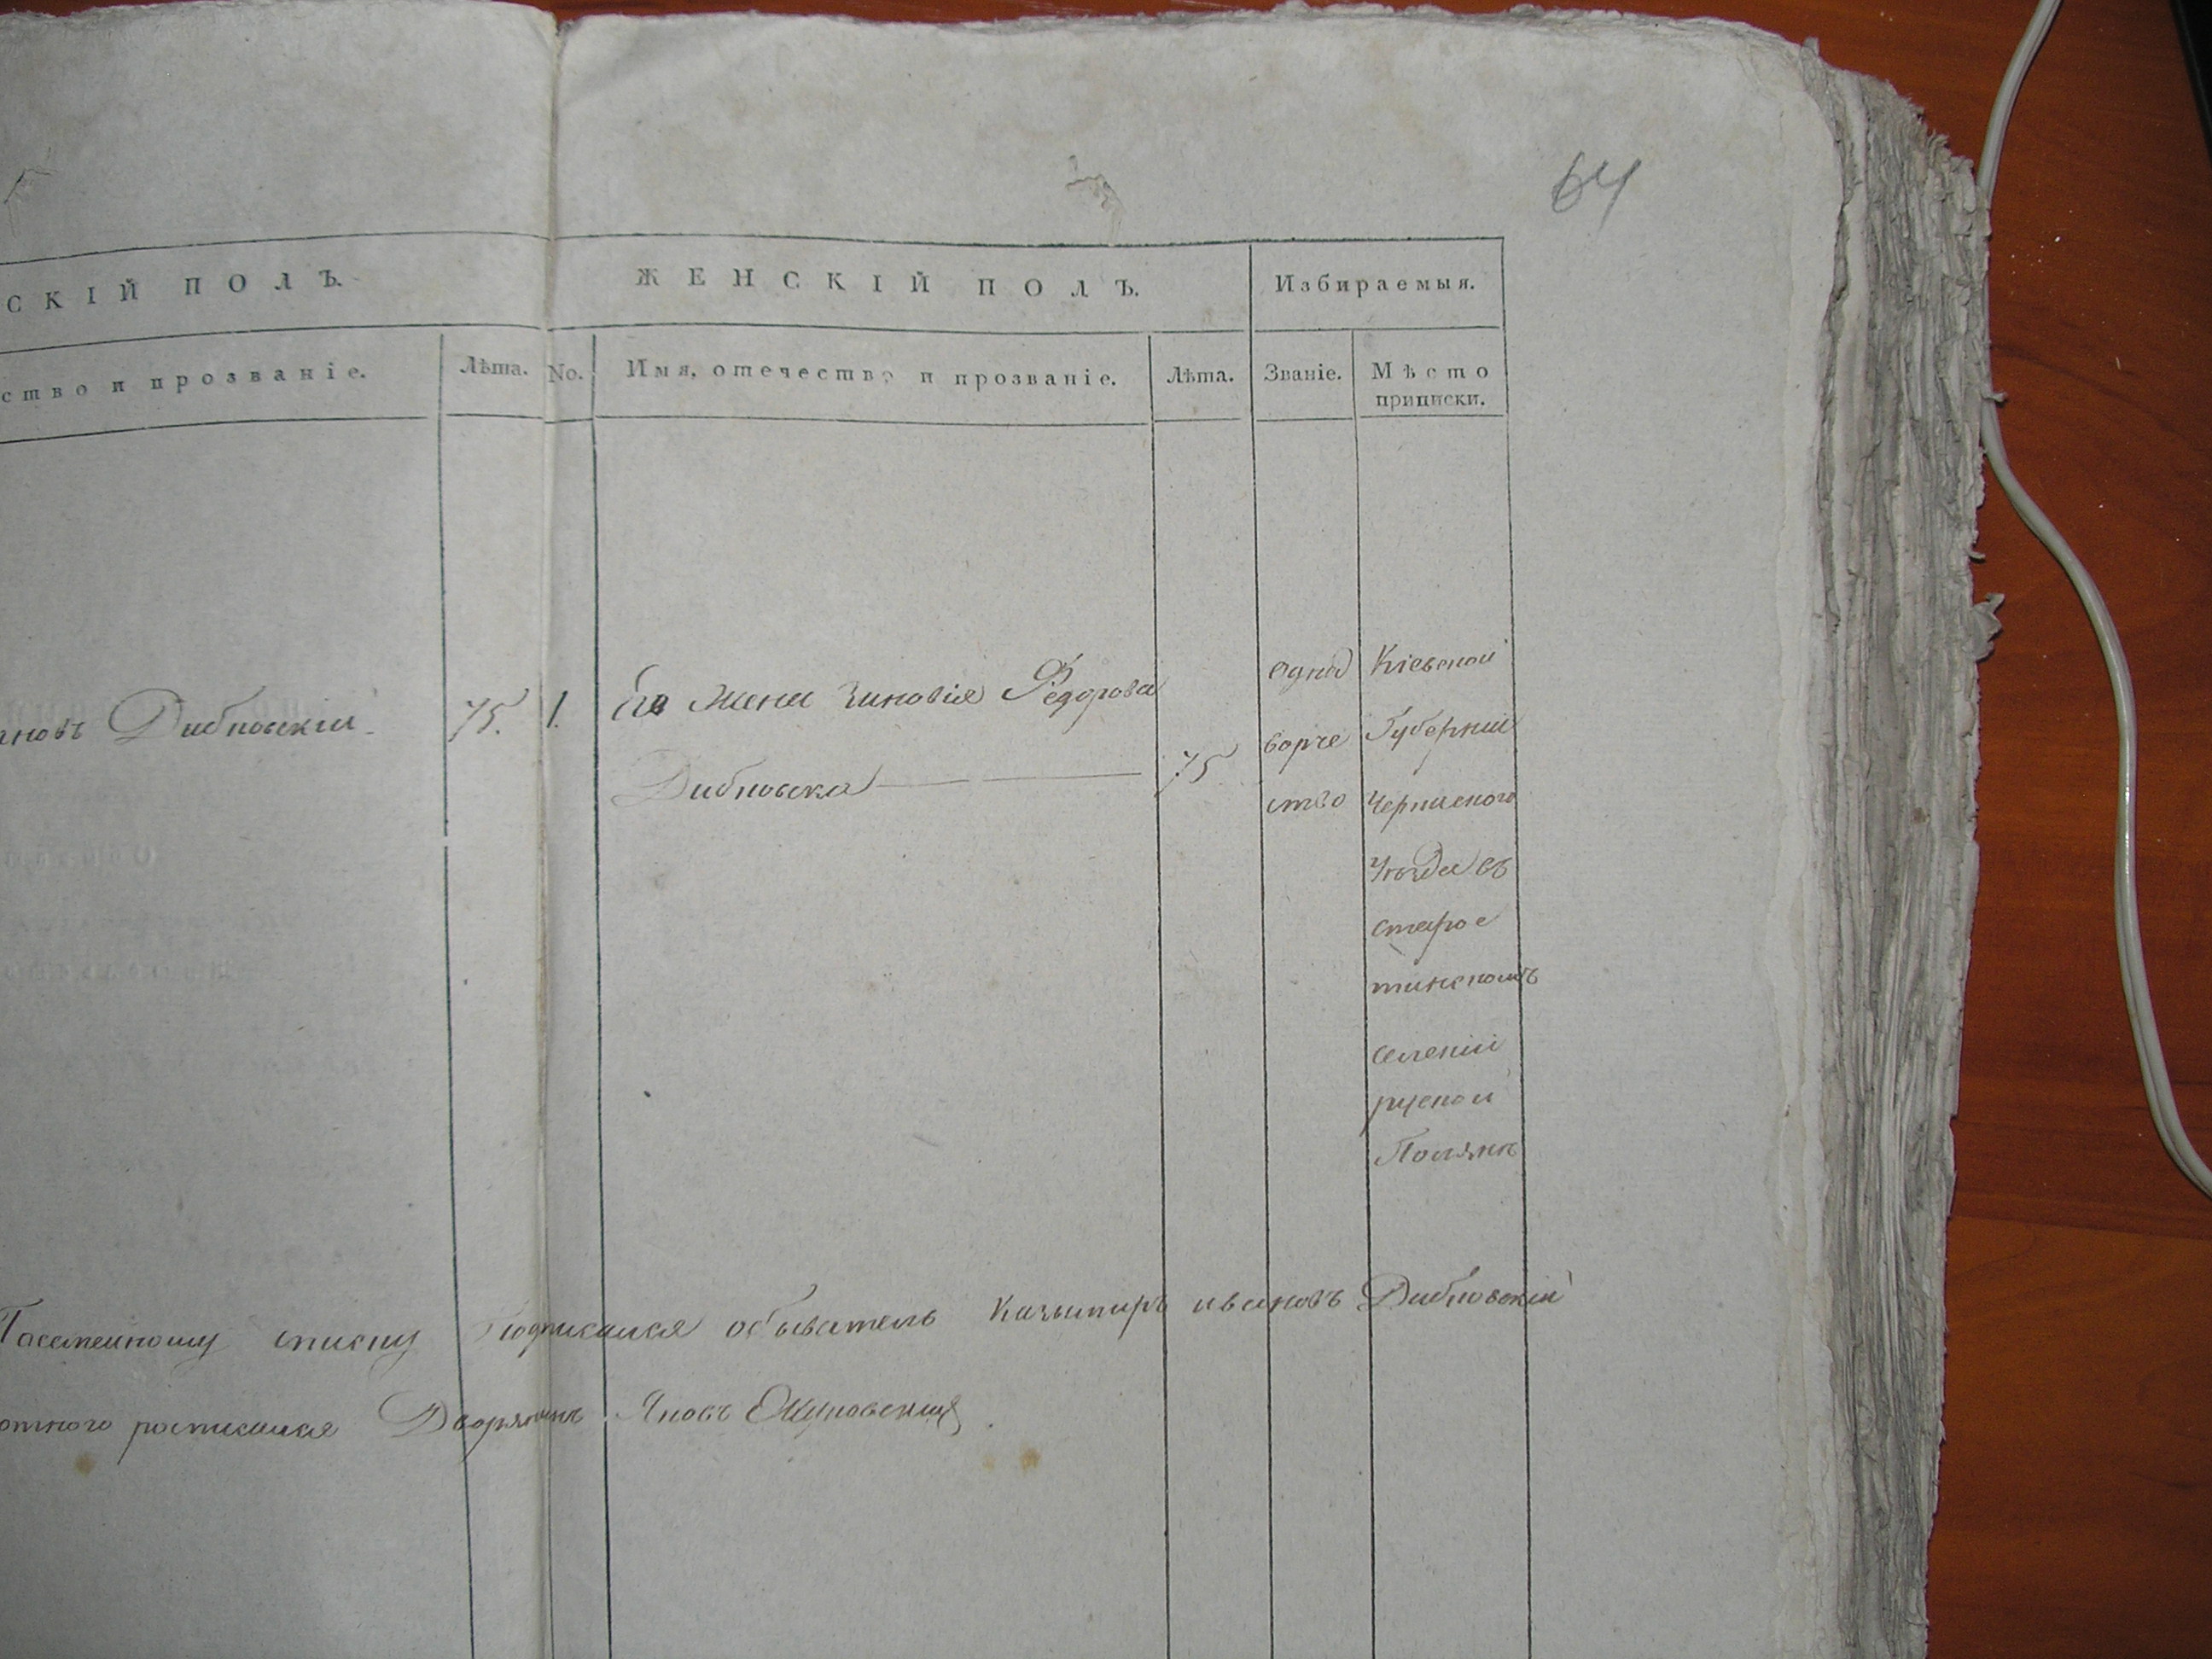 64
СКІЙ ПОЛЪ. ЖЕНСКІЙ ПОЛЪ. Избираемыя.
ство и прозваніе. Лѣта. No. Имя, отечество и прозваніе. Лѣта. Званіе. Мѣсто приписки.
ановъ Дибновскій 75. 1. Его жена Зиновія Федорова
Дибновска 75
одно
ворче
ство
Кіевской
Губерніи
Черкаского
Уѣзда въ
старое
тинскомъ
селеніи
руской
Полянѣ
Посемейному списку подписался обыватель Казимиръ ивановъ Дибновскій
отного росписался Дворянинъ Яновъ